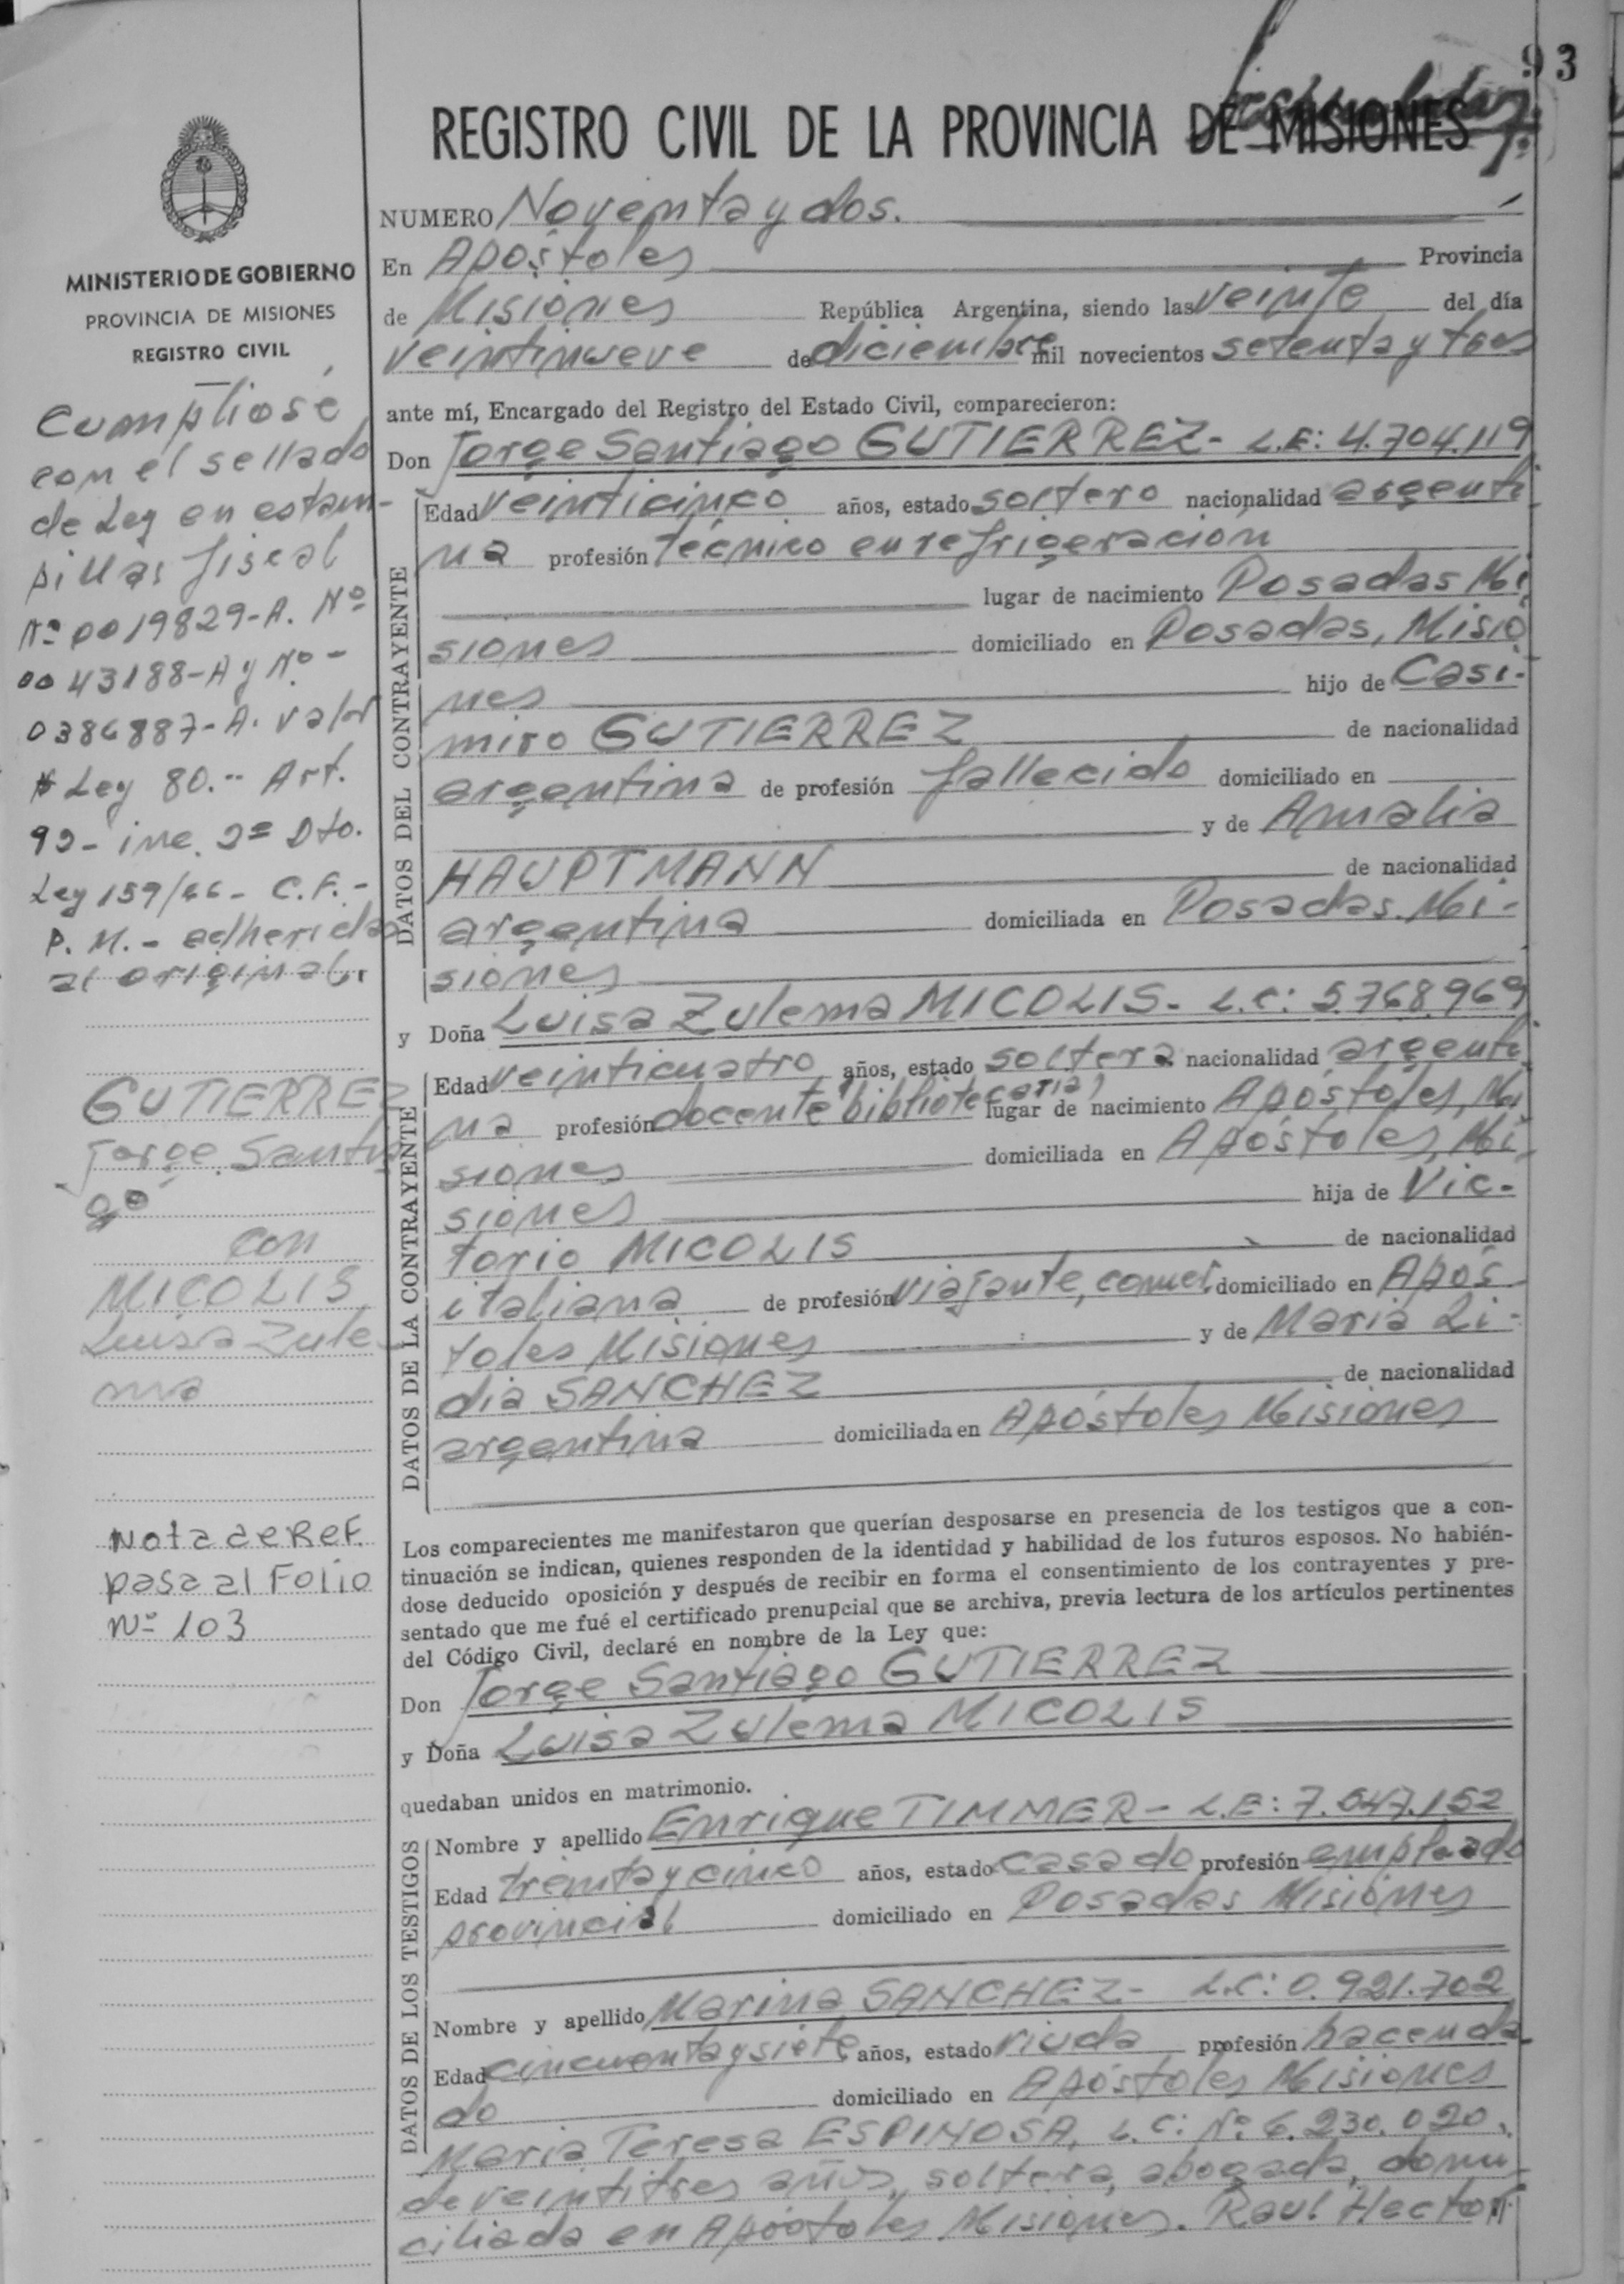 93
REGISTRO CIVIL DE LA PROVINCIA DE MISIONES
MINISTERIO DE GOBIERNO
PROVINCIA DE MISIONES
REGISTRO CIVIL
Cumpliose
con el sellado
de Ley en estam-
pillas fiscal
Nº 0019829-A. Nº
0043188-A y Nº -
0386887-A. valor
$ Ley 80.-- Art.
92- inc. 2º Dto.
Ley 159/66- C.F.-
P. M.- adheridas
al original.
GUTIERREZ
Jorge Santia
go
con
MICOLIS
Luisa Zule
ma
Nota de Ref.
pasa al Folio
Nº 103
NUMERO Noventa y dos.
En Apóstoles Provincia
de Misiones República Argentina, siendo las veinte del día
veintinueve de diciembre mil novecientos setenta y tres
ante mí, Encargado del Registro del Estado Civil, comparecieron:
Don Jorge Santiago GUTIERREZ- L.E: 4.704.119
DATOS DEL CONTRAYENTE
Edad veinticinco años, estado soltero nacionalidad argenti
na profesión técnico en refrigeración
lugar de nacimiento Posadas Mi
siones domiciliado en Posadas, Misio
nes hijo de Casi-
miro GUTIERREZ de nacionalidad
argentina de profesión fallecido domiciliado en
y de Amalia
HAUPTMANN de nacionalidad
argentina domiciliada en Posadas. Mi-
siones
y Doña Luisa Zulema MICOLIS- L.C: 5.768.969
DATOS DE LA CONTRAYENTE
Edad veinticuatro años, estado soltera nacionalidad argenti
na profesión docente (bibliotecaria) lugar de nacimiento Apóstoles, Mi
siones domiciliada en Apóstoles, Mi
siones hija de Vic-
torio MICOLIS de nacionalidad
italiana de profesión viajante, comer. domiciliado en Após
toles Misiones y de Maria Li-
dia SANCHEZ de nacionalidad
argentina domiciliada en Apóstoles Misiones
Los comparecientes me manifestaron que querían desposarse en presencia de los testigos que a con-
tinuación se indican, quienes responden de la identidad y habilidad de los futuros esposos. No habién-
dose deducido oposición y después de recibir en forma el consentimiento de los contrayentes y pre-
sentado que me fué el certificado prenupcial que se archiva, previa lectura de los artículos pertinentes
del Código Civil, declaré en nombre de la Ley que:
Don Jorge Santiago GUTIERREZ
y Doña Luisa Zulema MICOLIS
quedaban unidos en matrimonio.
DATOS DE LOS TESTIGOS
Nombre y apellido Enrique TIMMER- L.E: 7.547.152
Edad treinta y cinco años, estado casado profesión empleado
provincial domiciliado en Posadas Misiones
Nombre y apellido Marina SANCHEZ- L.C: 0.921.702
Edad cincuenta y siete años, estado viuda profesión hacenda
do domiciliado en Apóstoles Misiones
Maria Teresa ESPINOSA, L.C: Nº 6.230.020,
de veintitres años, soltera, abogada, domi
ciliada en Apóstoles Misiones. Raul Hector